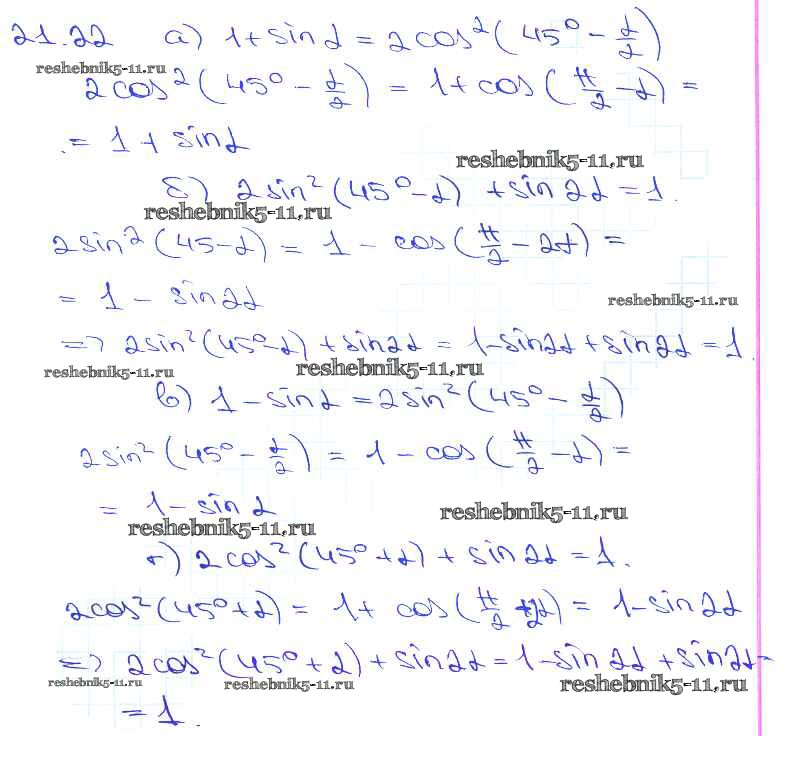 21.22 а) 1 + sin α = 2cos²(45° - α/2)
reshebnik5-11.ru
2cos²(45° - α/2) = 1 + cos(π/2 - α) =
= 1 + sin α
reshebnik5-11.ru
б) 2sin²(45° - α) + sin 2α = 1.
reshebnik5-11.ru
2sin²(45 - α) = 1 - cos(π/2 - 2α) =
= 1 - sin 2α
reshebnik5-11.ru
=> 2sin²(45° - α) + sin 2α = 1 - sin 2α + sin 2α = 1.
reshebnik5-11.ru reshebnik5-11.ru
в) 1 - sin α = 2sin²(45° - α/2)
2sin²(45° - α/2) = 1 - cos(π/2 - α) =
= 1 - sin α
reshebnik5-11.ru reshebnik5-11.ru
г) 2cos²(45° + α) + sin 2α = 1.
2cos²(45° + α) = 1 + cos(π/2 + 2α) = 1 - sin 2α
=> 2cos²(45° + α) + sin 2α = 1 - sin 2α + sin 2α =
reshebnik5-11.ru reshebnik5-11.ru reshebnik5-11.ru
= 1.